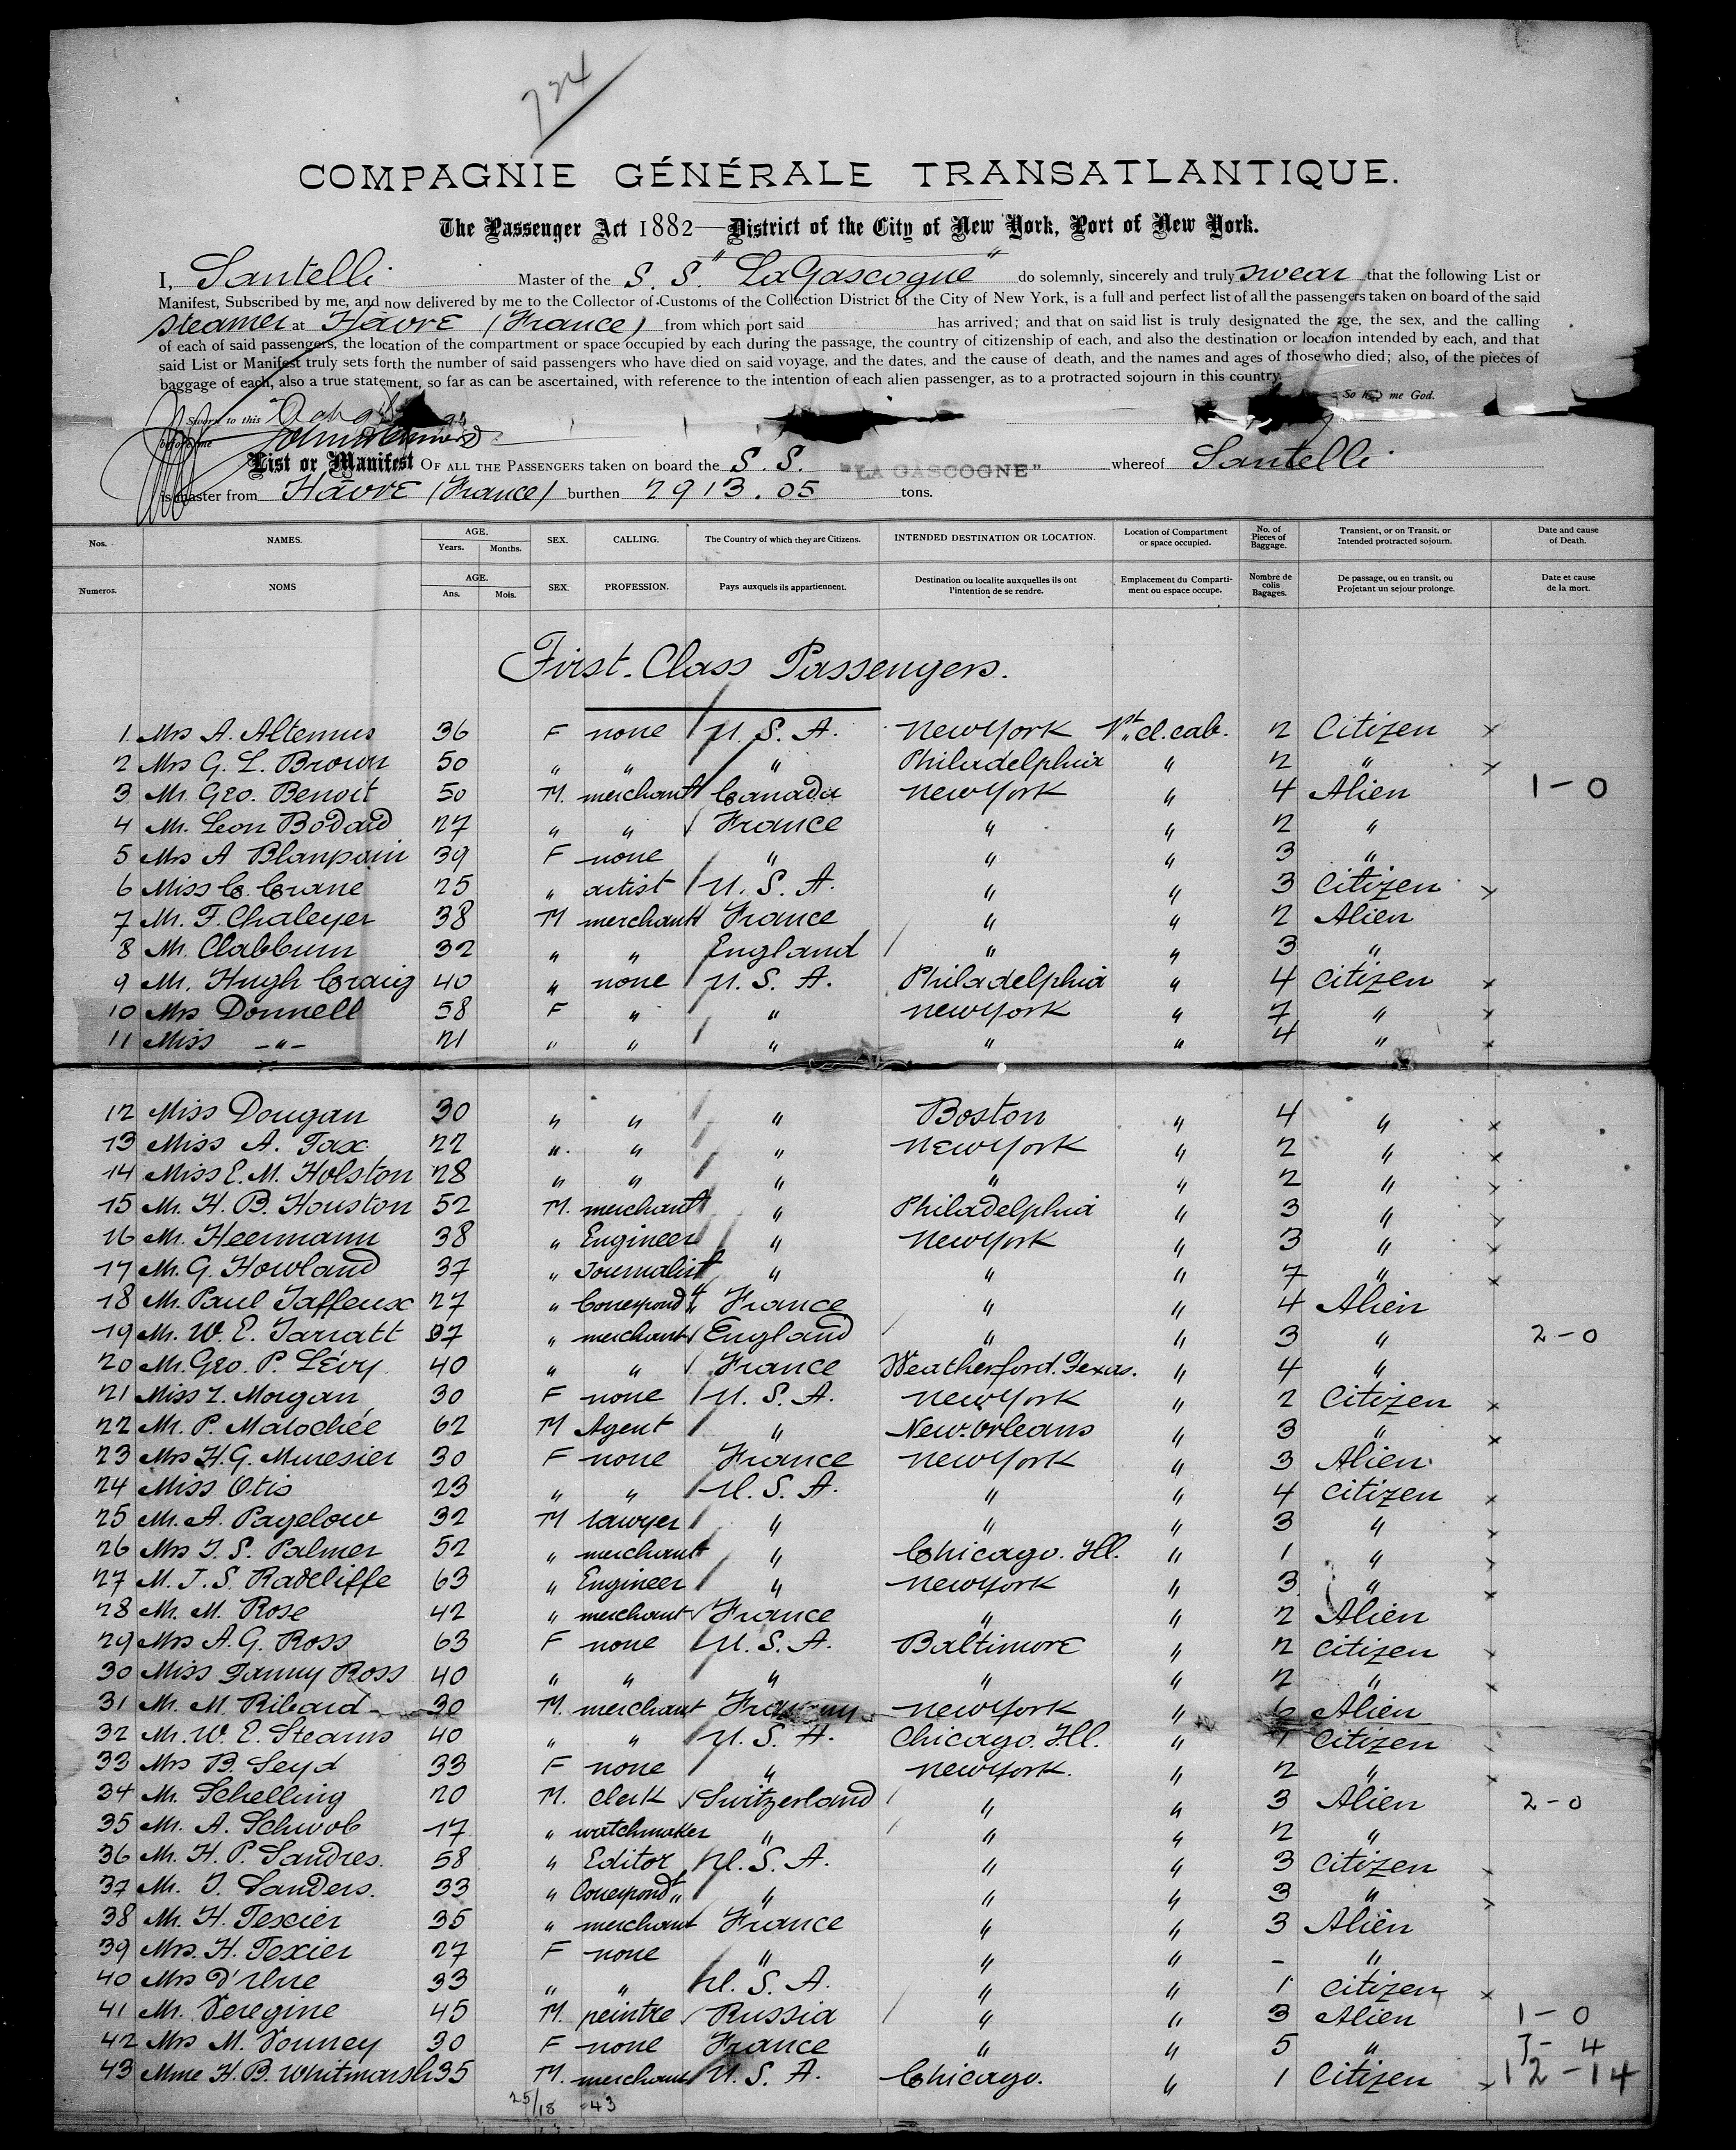 724
COMPAGNIE GÉNÉRALE TRANSATLANTIQUE.
The Passenger Act 1882—District of the City of New York, Port of New York.
I, Santelli Master of the S. S. "La Gascogne" do solemnly, sincerely and truly swear that the following List or
Manifest, Subscribed by me, and now delivered by me to the Collector of Customs of the Collection District of the City of New York, is a full and perfect list of all the passengers taken on board of the said
steamer at Hâvre (France) from which port said has arrived; and that on said list is truly designated the age, the sex, and the calling
of each of said passengers, the location of the compartment or space occupied by each during the passage, the country of citizenship of each, and also the destination or location intended by each, and that
said List or Manifest truly sets forth the number of said passengers who have died on said voyage, and the dates, and the cause of death, and the names and ages of those who died; also, of the pieces of
baggage of each, also a true statement, so far as can be ascertained, with reference to the intention of each alien passenger, as to a protracted sojourn in this country.
So help me God.
Sworn to this
before me
List or Manifest OF ALL THE PASSENGERS taken on board the S. S. "LA GASCOGNE" whereof Santelli
is master from Hâvre (France) burthen 2913.05 tons.
Nos. NAMES. AGE. Years. Months. SEX. CALLING. The Country of which they are Citizens. INTENDED DESTINATION OR LOCATION. Location of Compartment or space occupied. No. of Pieces of Baggage. Transient, or on Transit, or Intended protracted sojourn. Date and cause of Death.
Numeros. NOMS AGE. Ans. Mois. SEX. PROFESSION. Pays auxquels ils appartiennent. Destination ou localite auxquelles ils ont l'intention de se rendre. Emplacement du Compartiment ou espace occupe. Nombre de colis Bagages. De passage, ou en transit, ou Projetant un sejour prolonge. Date et cause de la mort.
First-Class Passengers.
1. Mrs A. Altemus 36 F none U.S.A. New York 1st cl. cab. 2 Citizen x
2 Mrs G. L. Brown 50 " " " Philadelphia " 2 " x
3 Mr. Geo. Benoit 50 M. merchant Canada New York " 4 Alien 1-0
4 Mr. Leon Bodard 27 " " France " " 2 "
5 Mrs A Blanpain 39 F none " " " 3 "
6 Miss C. Crane 25 " artist U.S.A. " " 3 Citizen x
7 Mr. F. Chaleyer 38 M merchant France " " 2 Alien
8 Mr. Clabburn 32 " " England " " 3 "
9 Mr. Hugh Craig 40 " none U.S.A. Philadelphia " 4 Citizen x
10 Mrs Donnell 58 F " " New York " 7 " x
11 Miss -"- 21 " " " " " 4 " x
12 Miss Dougan 30 " " " Boston " 4 " x
13 Miss A. Fax 22 " " " New York " 2 " x
14 Miss E. M. Holston 28 " " " " " 2 " x
15 Mr. H. B. Houston 52 M. merchant " Philadelphia " 3 " x
16 Mr. Heermann 38 " Engineer " New York " 3 " x
17 Mr. G. Howland 37 " Journalist " " " 7 " x
18 Mr. Paul Jaffeux 27 " Correspondt France " " 4 Alien
19 Mr. W. E. Jarratt 37 " merchant England " " 3 " 2-0
20 Mr. Geo. P. Lévy 40 " " France Weatherford. Texas. " 4 "
21 Miss J. Morgan 30 F none U.S.A. New York " 2 Citizen x
22 Mr. P. Malochée 62 M Agent " New-Orleans " 3 " x
23 Mrs H. G. Muresier 30 F none France New York " 3 Alien
24 Miss Otis 23 " " U.S.A. " " 4 Citizen x
25 Mr. A. Pagelow 32 M lawyer " " " 3 " x
26 Mrs J. S. Palmer 52 " merchant " Chicago. Ill. " 1 " x
27 M. J. S. Radcliffe 63 " Engineer " New York " 3 " x
28 Mr. M. Rose 42 " merchant France " " 2 Alien
29 Mrs A. G. Ross 63 F none U.S.A. Baltimore " 2 Citizen x
30 Miss Fanny Ross 40 " " " " " 2 " x
31 M. M. Ribard 30 M. merchant New York " 6 Alien
32 Mr. W. E. Stearns 40 " " U.S.A. Chicago. Ill. " 1 Citizen
33 Mrs B. Seyd 33 F none " New York. " 2 " x
34 Mr. Schelling 20 M. Clerk Switzerland " " 3 Alien 2-0
35 Mr. A. Schwob 17 " watchmaker " " " 2 "
36 Mr. H. P. Sandres. 58 " Editor U.S.A. " " 3 Citizen x
37 Mr. J. Sanders. 33 " Correspondt " " " 3 " x
38 Mr. H. Texier 35 " merchant France " " 3 Alien
39 Mrs. H. Texier 27 F none " " " - "
40 Mrs D'Une 33 " " U.S.A. " " 1 Citizen x
41 Mr. Veregine 45 M. peintre Russia " " 3 Alien 1-0
42 Mrs M. Vonney 30 F none France " " 5 " 7-4
43 Mme H. B. Whitmarsh 35 M. merchant U.S.A. Chicago. " 1 Citizen x 12-14
25/18 =43